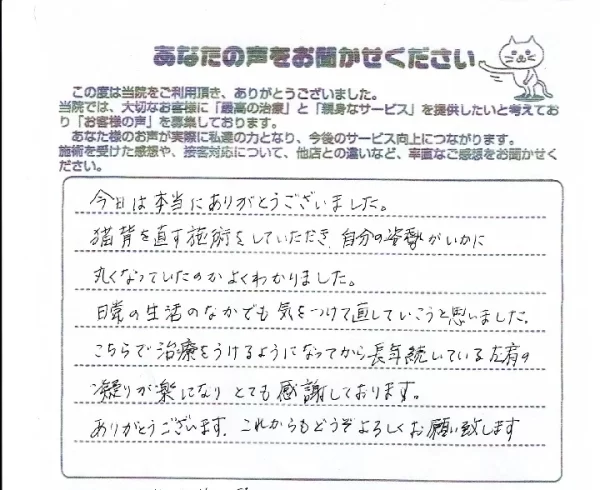 あなたの声をお聞かせください
この度は当院をご利用頂き、ありがとうございました。
当院では、大切なお客様に「最高の治療」と「親身なサービス」を提供したいと考えてお
り「お客様の声」を募集しております。
あなた様のお声が実際に私達の力となり、今後のサービス向上につながります。
施術を受けた感想や、接客対応について、他店との違いなど、率直なご感想をお聞かせく
ださい。
今日は本当にありがとうございました。
猫背を直す施術をしていただき 自分の姿勢がいかに
丸くなっていたのかよくわかりました。
日常の生活のなかでも気をつけて直していこうと思いました。
こちらで治療をうけるようになってから長年続いている左肩の
凝りが楽になり とても感謝しております。
ありがとうございます。これからもどうぞよろしくお願い致します